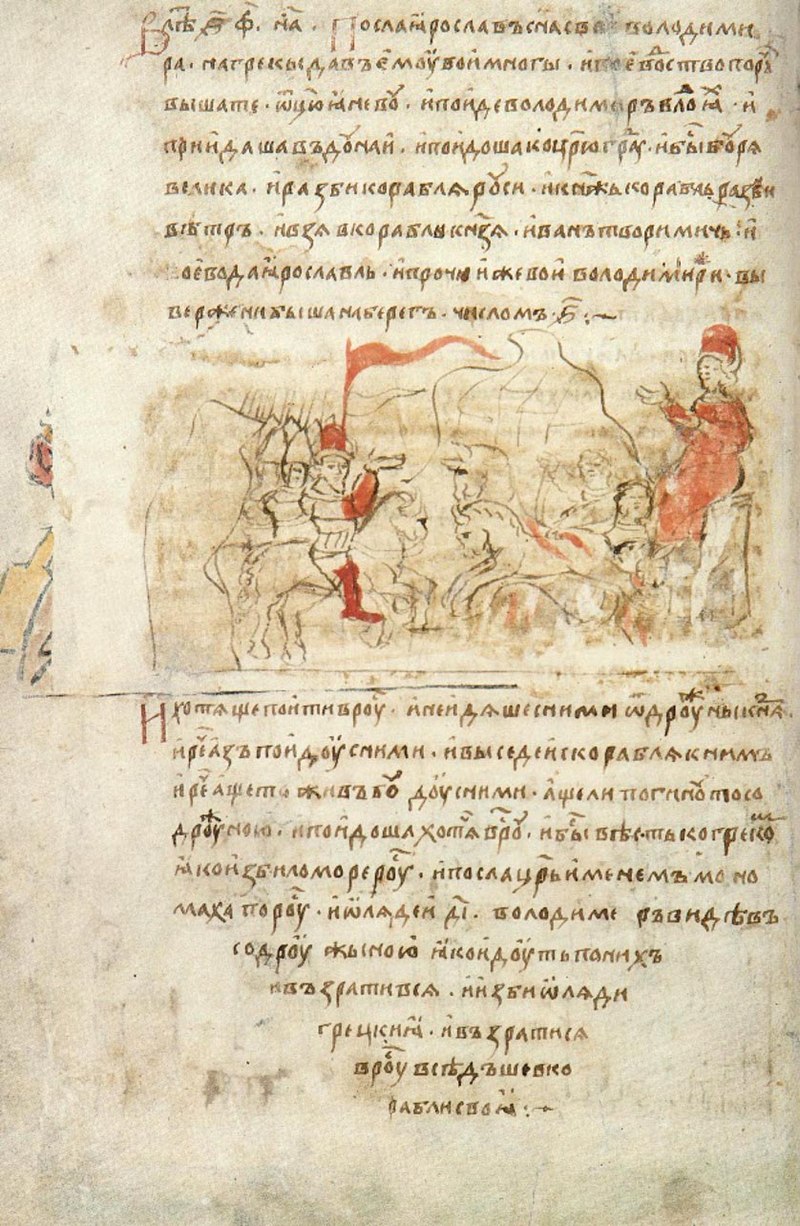 В лѣⷮ ҂ѕ҃ ф҃ н҃а · Посла ꙗрославъ сн҃а сво володими
ра · на грекы давъ ємоу вои многы · и воєвⷪ҇дство пороуⷱ
вышатѣ · ѿцю ꙗневоу · и поиде володимиръ в лодьꙗⷯ · и
приидѧша въ доунаи · и поидоша ко цр҃ю граⷣу · и бⷭ҇ы боурѧ
велика · и разби кораблѧ роуси · и кнѧжь корабль разби
вѣтръ · и взѧ в корабль кн҃зѧ · иванъ творимичь · и
воєвода ꙗрославль · и прочии же вои володимири · вы
вержени быша на брегъ · числомъ · ҂ѕ҃ ·:~
И хотѧще поити в роуⷭ · и не идѧше с ними ѿ дроужины кнѧⷤ
и реⷱ азъ поидоу с ними · и выседе ис кораблѧ к нимъ
и реⷱ аще живъ боудоу с ними · аще ли погиноу то со
дроужиною · и поидоша хотѧ в роуⷭ · и бⷭ҇ы вѣсть ко грекоⷨ
ꙗко избило море роуⷭ · и посла цр҃ь именемъ моно
махъ по роуⷭ · и ѡлѧдеи д҃і · володимеръ видѣвъ
со дроужиною ꙗко идоуть по нихъ
и възративсѧ · и изби ѡлѧди
грецкиꙗ · и възратисѧ
в роуⷭ всѣдъше в ко
рабли своꙗ ·:~